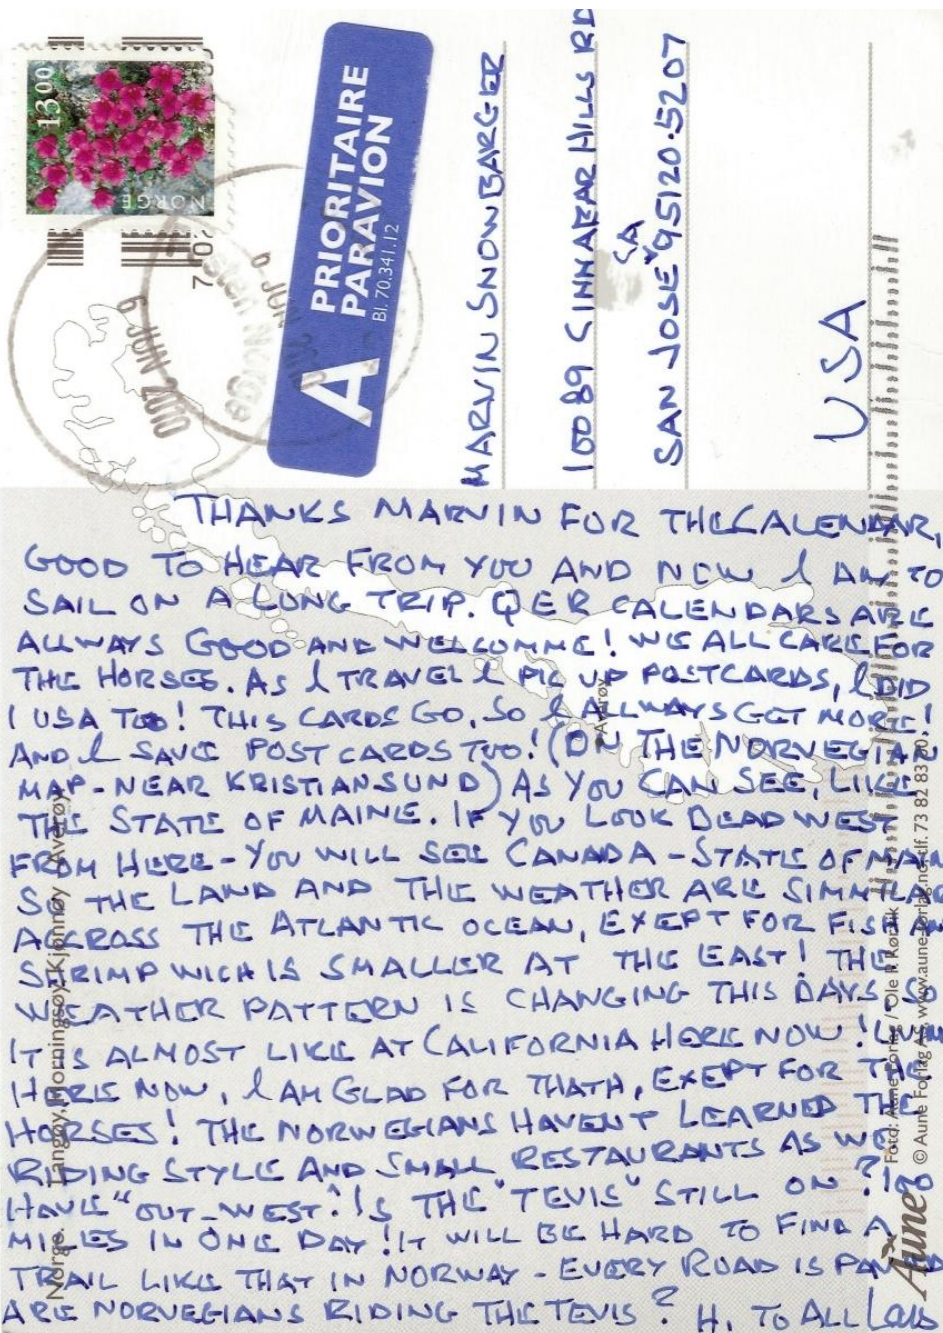 13 00
NORGE
A PRIORITAIRE
PAR AVION
Bl. 70.341.12
MARVIN SNOWBARGER
10089 CINNABAR HILLS RD
CA
SAN JOSE 95120-5207
USA
THANKS MARVIN FOR THE CALENDAR,
GOOD TO HEAR FROM YOU AND NOW I AM TO
SAIL ON A LONG TRIP. QER CALENDARS ARE
ALLWAYS GOOD AND WELCOMME! WE ALL CARE FOR
THE HORSES. AS I TRAVEL I PIC UP POSTCARDS, I DID
I USA TOO! THIS CARDS GO, SO I ALLWAYS GET MORE!
AND I SAVE POST CARDS TOO! (ON THE NORVEGIAN
MAP - NEAR KRISTIANSUND) AS YOU CAN SEE, LIKE
THE STATE OF MAINE. IF YOU LOOK DEAD WEST
FROM HERE - YOU WILL SEE CANADA - STATE OF MAIN
SO THE LAND AND THE WEATHER ARE SIMMILAR
ACCROSS THE ATLANTIC OCEAN, EXEPT FOR FISH AN
SHRIMP WICH IS SMALLER AT THE EAST! THE
WEATHER PATTERN IS CHANGING THIS DAYS, SO
IT IS ALMOST LIKE AT CALIFORNIA HERE NOW!
HERE NOW, I AM GLAD FOR THATH, EXEPT FOR THE
HORSES! THE NORWEGIANS HAVENT LEARNED THE
RIDING STYLE AND SMALL RESTAURANTS AS WE
HAVE "OUT-WEST". IS THE "TEVIS" STILL ON? 100
MILES IN ONE DAY! IT WILL BE HARD TO FIND A
TRAIL LIKE THAT IN NORWAY - EVERY ROAD IS PAVED
ARE NORVEGIANS RIDING THE TEVIS? H. TO ALL
Averøy
Norge. Langøy, Hjørningsøy, Kjønnøy Averøy
Foto: Aune Forlag / Ole P. Rørvik
© Aune Forlag AS, www.auneforlag.no, tlf. 73 82 83
Aune